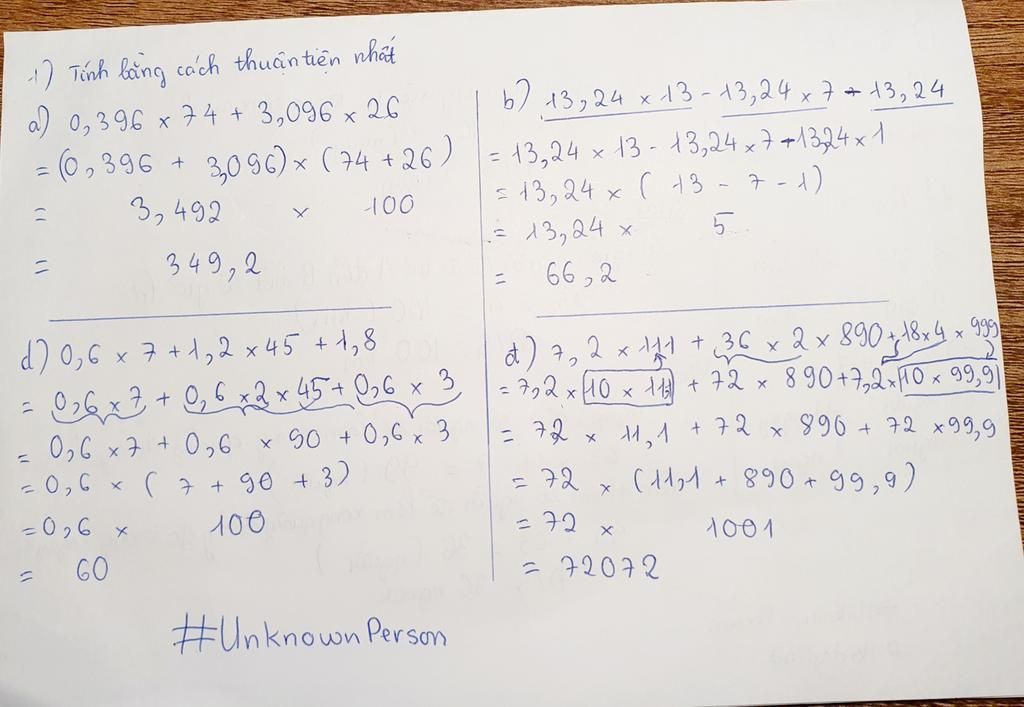 1) Tính bằng cách thuận tiện nhất
a) 0,396 x 74 + 3,096 x 26
= (0,396 + 3,096) x (74 + 26)
= 3,492 x 100
= 349,2
b) 13,24 x 13 - 13,24 x 7 - 13,24
= 13,24 x 13 - 13,24 x 7 - 13,24 x 1
= 13,24 x ( 13 - 7 - 1)
= 13,24 x 5
= 66,2
d) 0,6 x 7 + 1,2 x 45 + 1,8
= 0,6 x 7 + 0,6 x 2 x 45 + 0,6 x 3
= 0,6 x 7 + 0,6 x 90 + 0,6 x 3
= 0,6 x ( 7 + 90 + 3)
= 0,6 x 100
= 60
đ) 7,2 x 111 + 36 x 2 x 890 + 18 x 4 x 999
= 7,2 x 10 x 11,1 + 72 x 890 + 7,2 x 10 x 99,9
= 72 x 11,1 + 72 x 890 + 72 x 99,9
= 72 x (11,1 + 890 + 99,9)
= 72 x 1001
= 72072
#UnknownPerson